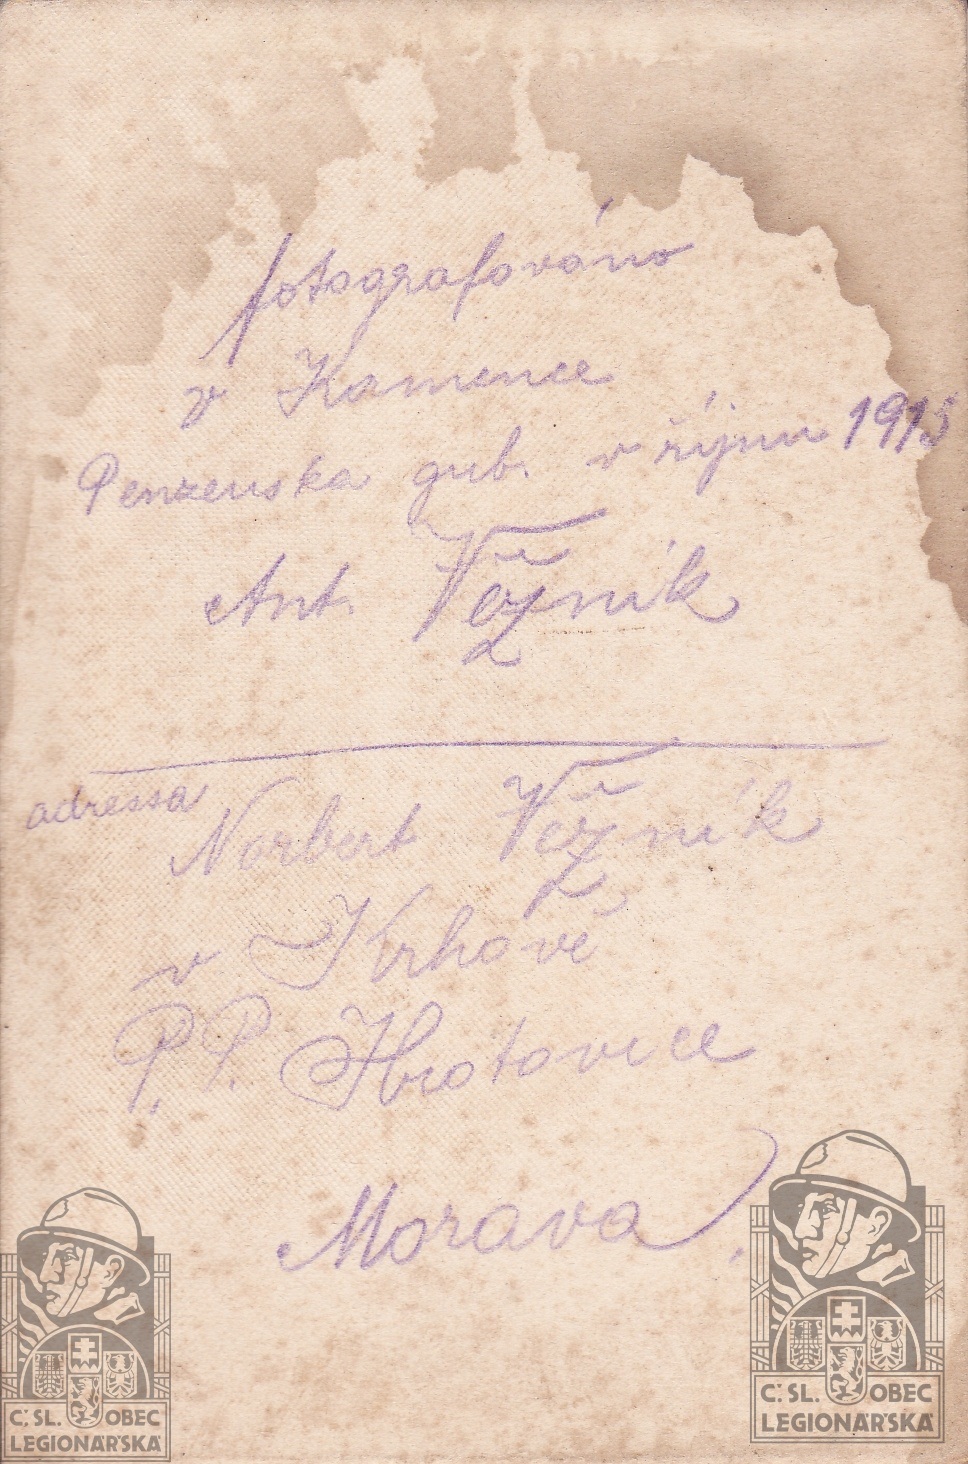 fotografováno
v Kamence
Penzenska gub. v říjnu 1915
Ant. Věžník
adressa
Norbert Věžník
v Krhově
P. P. Hrotovice
Morava.
Č.SL. OBEC
LEGIONÁŘSKÁ
Č.SL. OBEC
LEGIONÁŘSKÁ